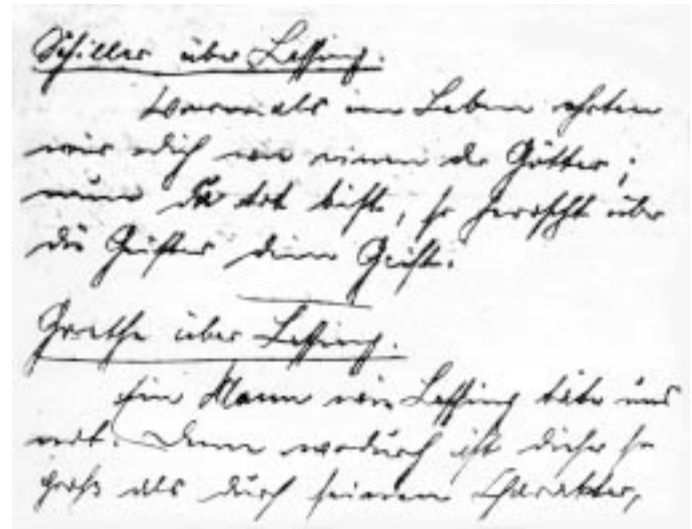 Schiller über Lessing.
Vormals im Leben ehrten
wir dich wie einen der Götter;
nun du tot bist, so herrscht über
die Geister dein Geist.
Goethe über Lessing.
Ein Mann wie Lessing täte uns
not. Denn wodurch ist dieser so
groß als durch seinen Charakter,